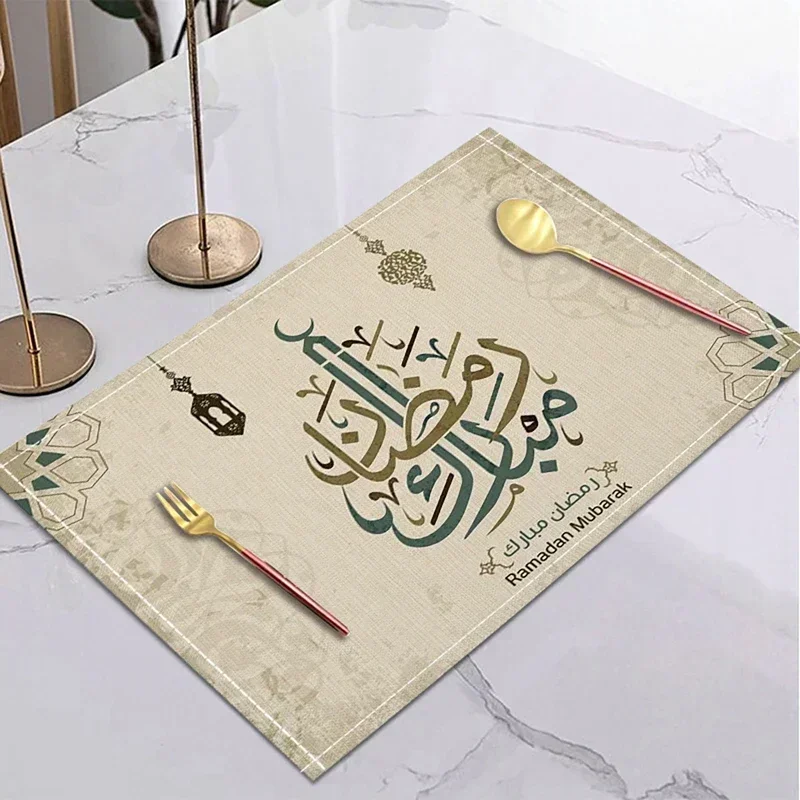 رمضان
مبارك
رمضان مبارك
Ramadan Mubarak